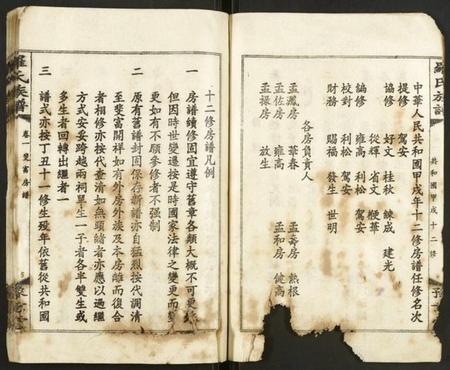 羅氏族譜
共和國甲戌十二修
中華人民共和國甲戌年十二修房譜任修名次
提修 駕安
協修 好文 桂秋 練成 建光
從輝 省文 鞭華
編修 雍高 利松 駕安
校對 利松 駕安
財務 賜福 發生 世明
各房負責人
孟鳳房 華春 孟壽房 熱根
孟佐房 雍高 孟和房 健高
孟操房 放生
十二修房譜凡例
一 房譜續修固宜遵守舊章各類大概不可更
但因時世變遷按是時國家法律之變更而變
更如有不願參修者不強制
二 原有舊譜封固保存新譜亦自猛烈按代調清
至斐富開祥如有外房外族及本房離而復合
者相修亦按代查清如無頭緒者亦應以過繼
方式安妥跨越兩祠單生一子者各半雙生或
多生者回轉出繼者一
三 譜式亦按丁丑十一修生歿年依舊從共和國
羅氏族譜
卷一斐富房譜